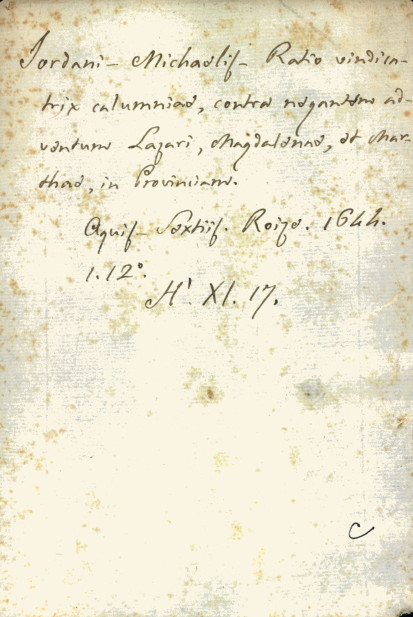 Jordani - Michaelis - Ratio vindica-
trix calumniae, contra negantem ad-
ventum Lazari, Magdalenae, et Mar-
thae, in Provinciam.
Aquis - Sextiis. Roize. 1644.
1. 12°.
H'. XI. 17.
C